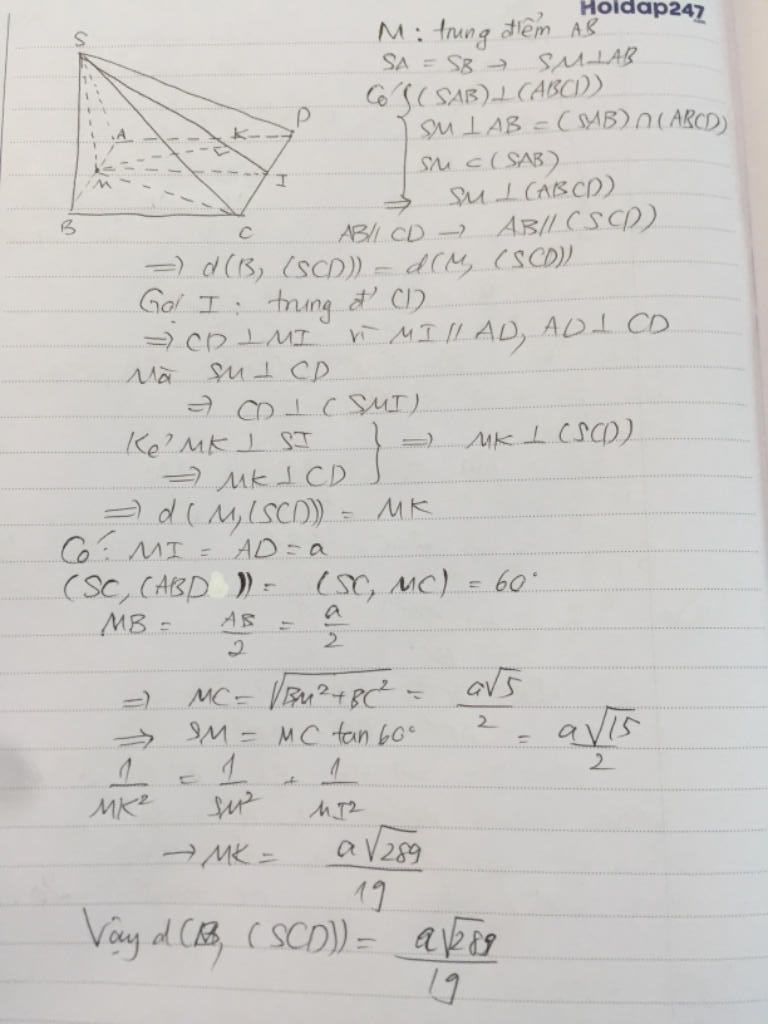 Hoidap247
M : trung điểm AB
SA = SB → SM ⊥ AB
Có { (SAB) ⊥ (ABCD)
SM ⊥ AB = (SAB) ∩ (ABCD)
SM ⊂ (SAB)
⇒ SM ⊥ (ABCD)
AB // CD → AB // (SCD)
⇒ d(B, (SCD)) = d(M, (SCD))
Gọi I : trung đ' CD
⇒ CD ⊥ MI vì MI // AD, AD ⊥ CD
Mà SM ⊥ CD
⇒ CD ⊥ (SMI)
Kẻ MK ⊥ SI } ⇒ MK ⊥ (SCD)
⇒ MK ⊥ CD
⇒ d(M,(SCD)) = MK
Có : MI = AD = a
(SC, (ABD )) = (SC, MC) = 60°
MB = AB/2 = a/2
⇒ MC = √(BM² + BC²) = a√5/2
⇒ SM = MC tan 60° = a√15/2
1/MK² = 1/SM² + 1/MI²
→ MK = a√289/19
Vậy d(B, (SCD)) = a√289/19
S
A
K
D
M
I
B
C